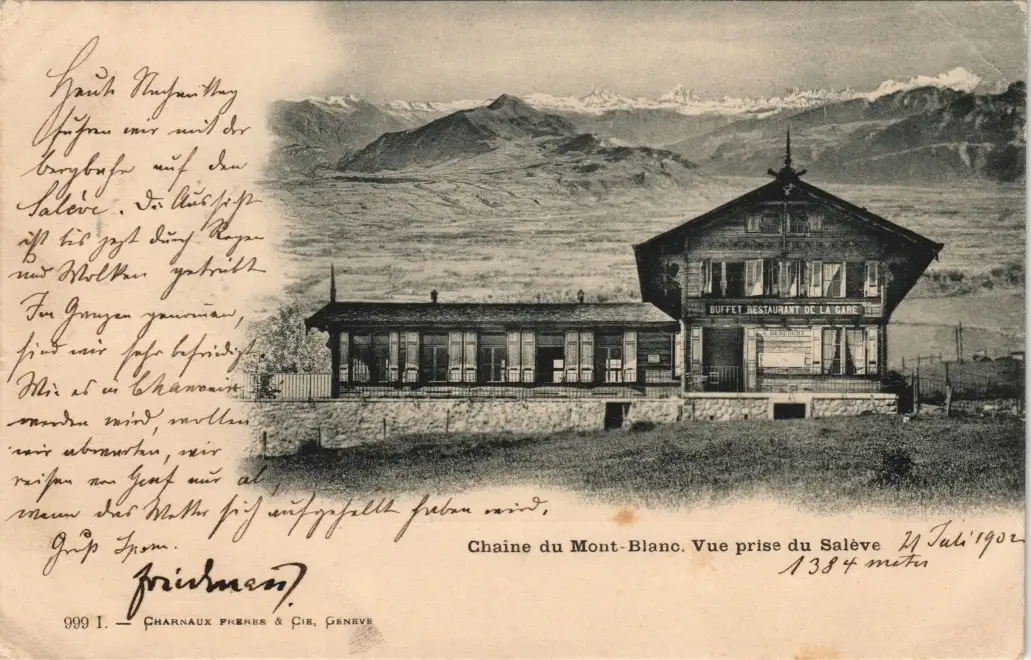 Heute Nachmittag
führen wir mit der
Bergbahn auf den
Salève. Die Aussicht
ist bis jetzt durch Regen
und Wolken getrübt
Im Ganzen genommen,
sind wir sehr befriedigt
Wie es in Chamonix
werden wird, wollen
wir abwarten, wir
reisen von Genf nur ab,
wenn das Wetter sich aufgehellt haben wird.
Gruß
BUFFET RESTAURANT DE LA GARE
Chaîne du Mont-Blanc. Vue prise du Salève
21 Juli 1902
1384 meter
999 I. — CHARNAUX FRÈRES & CIE, GENÈVE